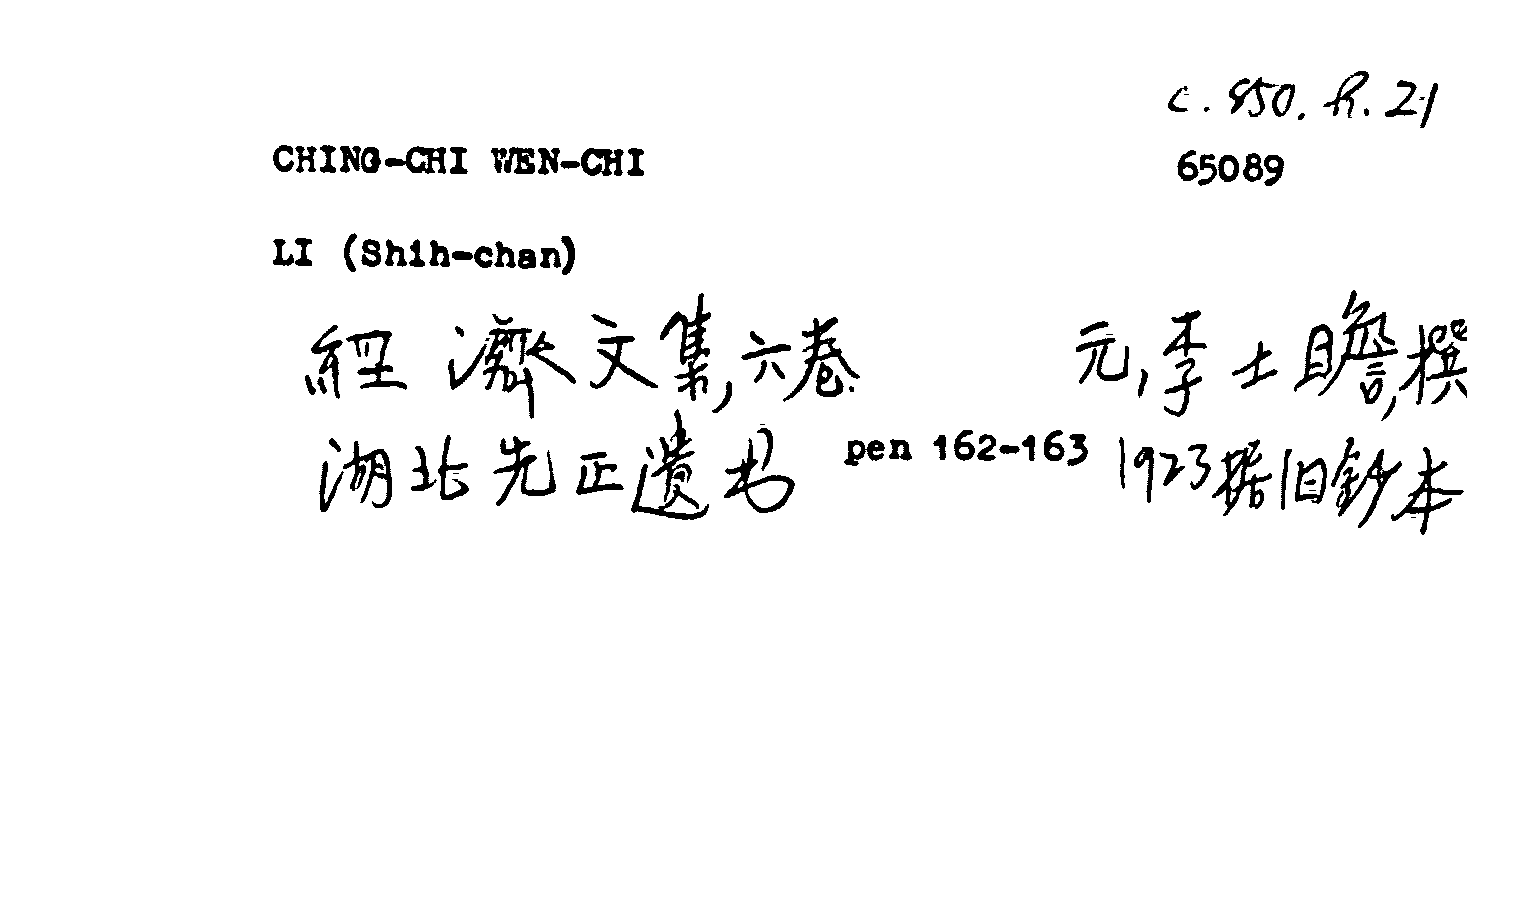 c. 850. h. 21
CHING-CHI WEN-CHI 65089
LI (Shih-chan)
經濟文集,六卷. 元,李士瞻,撰
湖北先正遺书 pen 162-163 1923据旧鈔本